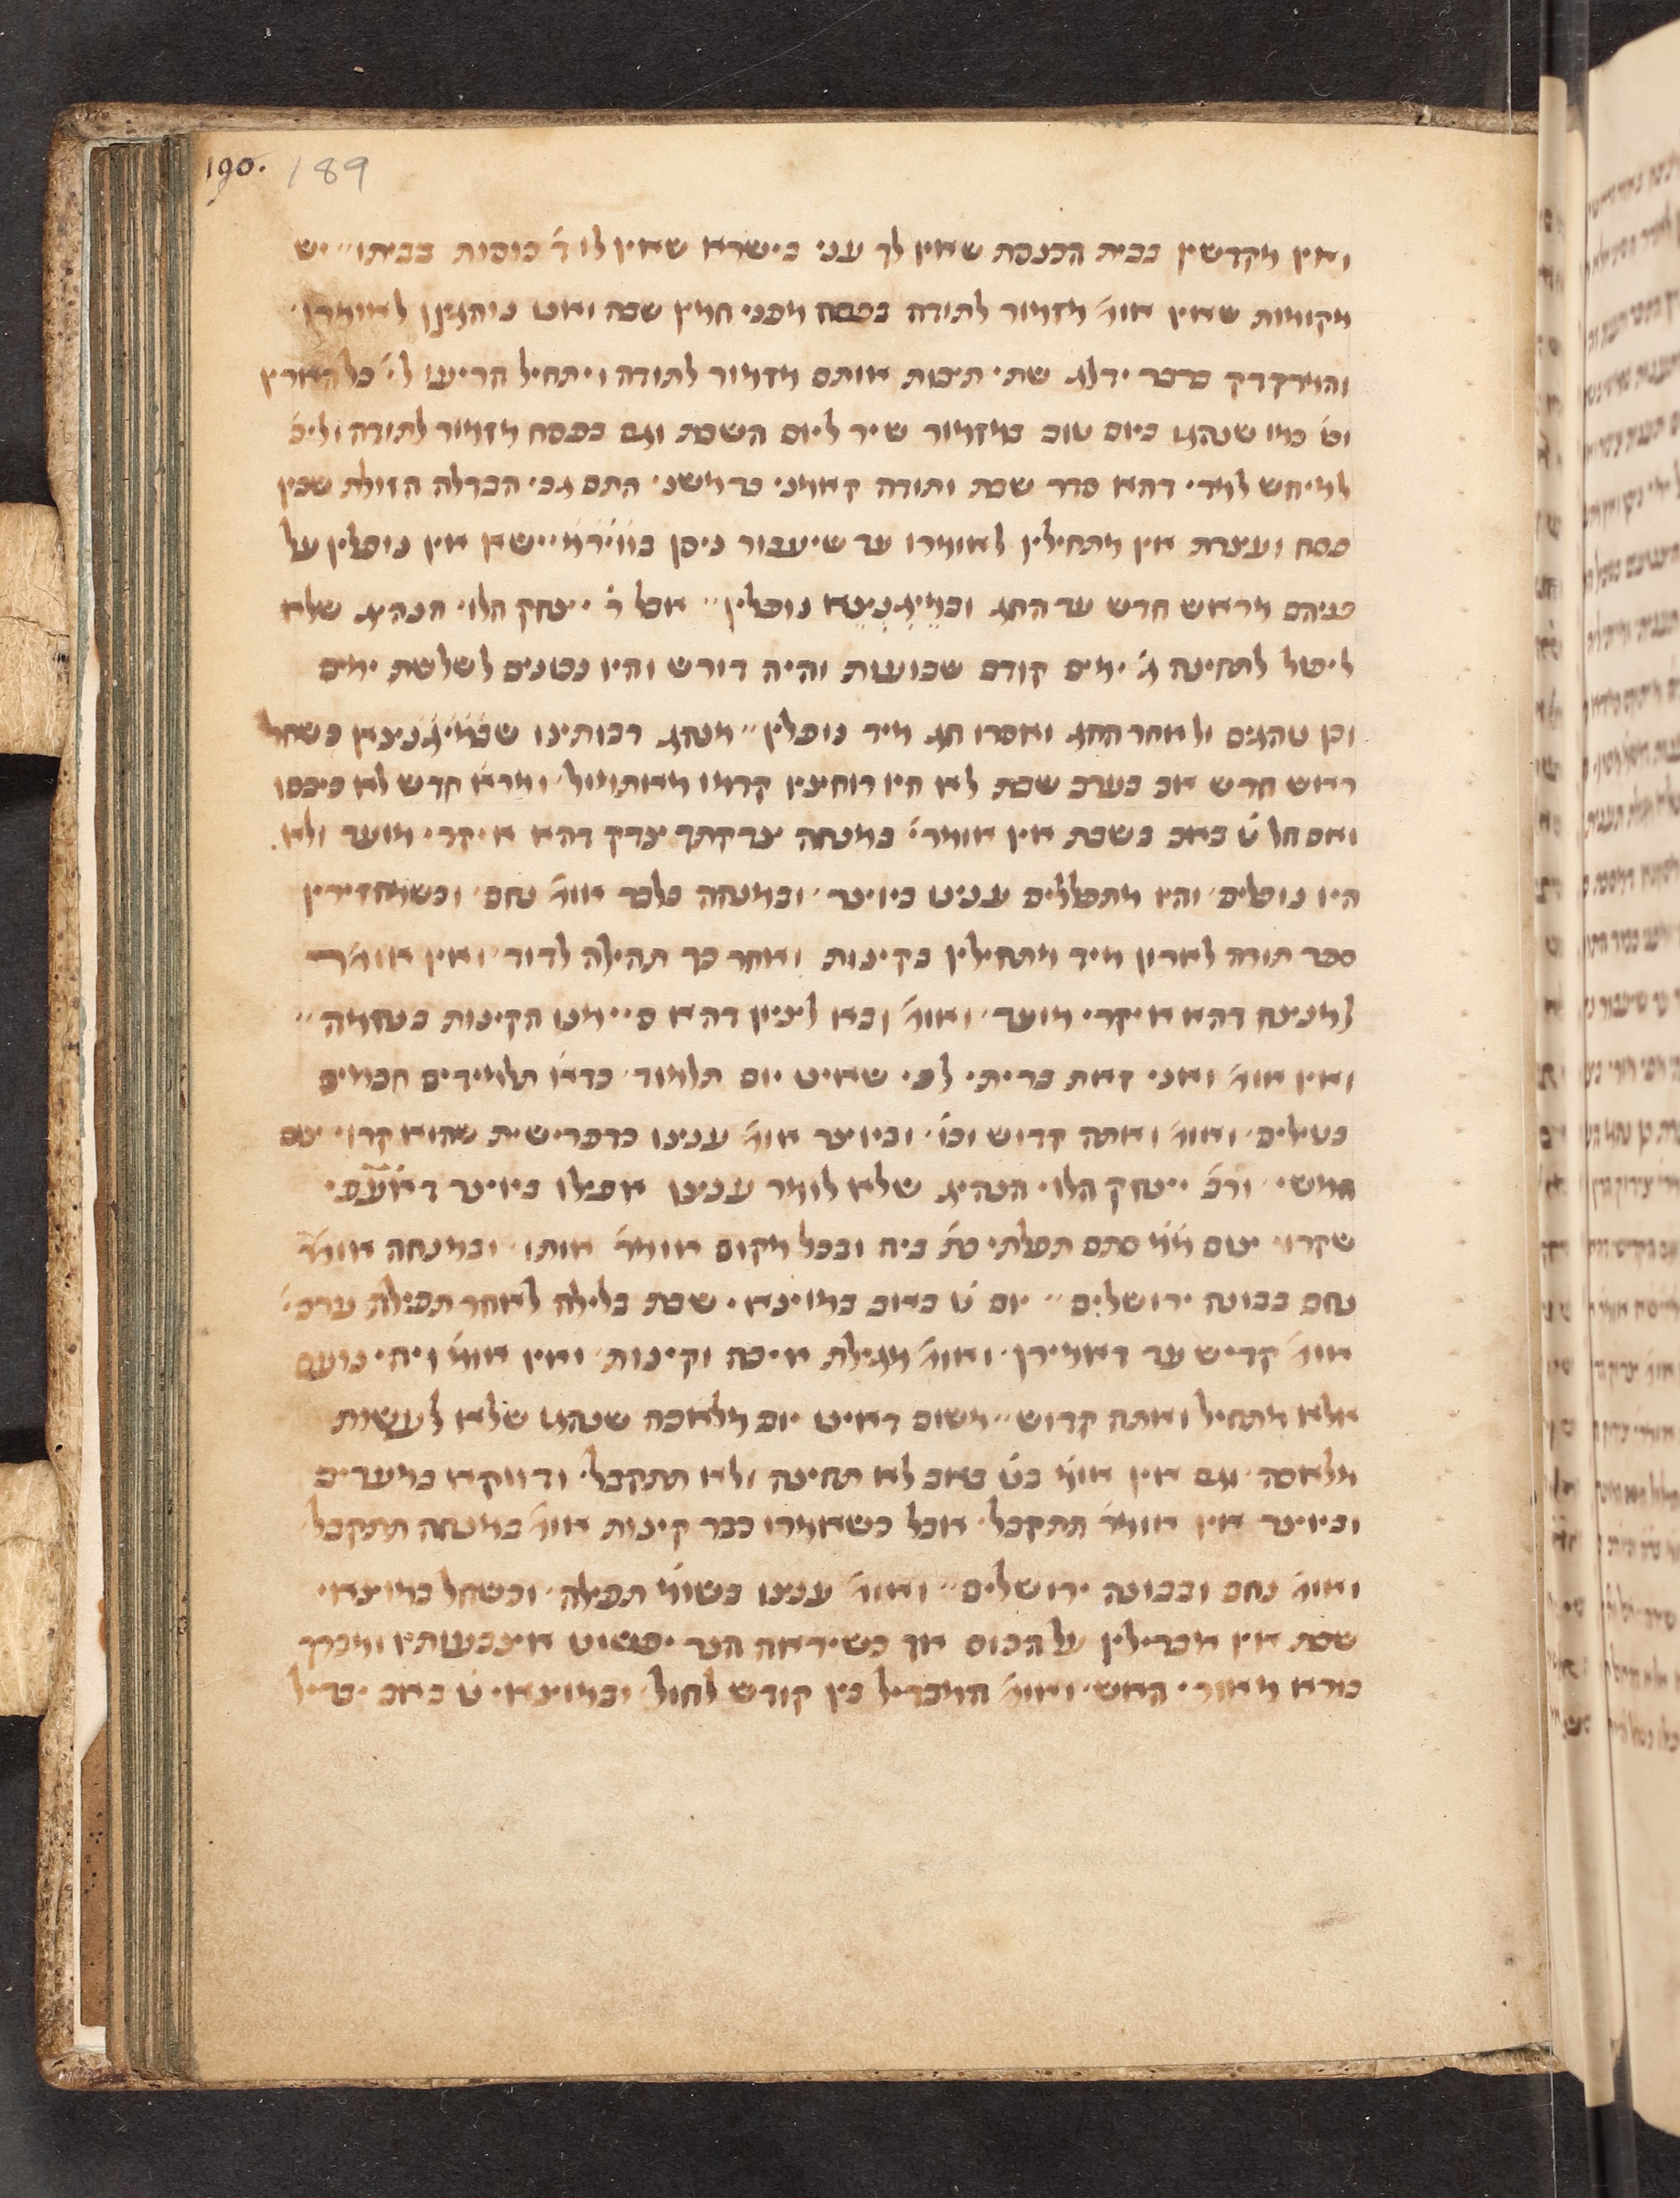 190. 189
ואין מקדשין בבית הכנסת שאין לך עני בישרא שאין לו ד' כוסות בביתו" יש
מקומות שאין אומ' מזמור לתודה בפסח מפני חמץ שבה ואנו נוהגין לאומרו
והמדקדק בדבר ידלג שתי תיבות אותם מזמור לתודה ויתחיל הריעו לי' כל הארץ
וט' כמו שנהגו ביום טוב מזמור שיר ליום השבת וגם בפסח מזמור לתודה וליכ'
למיחש למדי דהא סדר שבת ותודה קאמיני
פסח ועצרת אין מתחילין לאומרו עד שיעבור ניסן בווירמיישא אין נופלין על
פניהם מראש חדש עד החג ובמיגנצא נופלין" אבל ר' יצחק הלוי הנהיג שלא
ליפול לתחינה ג' ימים קודם שבועות והיה דורש והיו נכונים לשלשת ימים
וכן נוהגים ולאחר החג ואסרו חג מיד נופלין" מנהג רבותינו שבמיגנצא כשחל
ראש חדש אב בערב שבת לא היו רוחצין קדמו מאותמול ומרא' חדש לא כיבסו
ואם חל ט' באב בשבת אין אומרי' במנחה צדקתך צדק דהא איקרי מועד ולא
היו נופלים והיו מתפללים עננינו ביוצר ובמנחה בלבד אומ' נחם וכשמחזירין
ספר תורה לארון מיד מתחילין בקינות ואחר כך תהילה לדוד ואין אומרי'
למנצח דהא איקרי מועד ואומ' ובא לציון דהא סיימנו הקינות בנחמה"
ואין אומ' ואני זאת בריתי לפי שאינו יום תלמוד כדא' תלמידים חכמים
בטילים ואומ' ואתה קדוש וכו' וביוצר אומ' עננו כדפרישית שהוא קרוי צום
חמשי ורב' יצחק הלוי הנהיג שלא לומר עננו אפילו ביוצר
שקרוי צום סתם תפלתי בית ובכל מקום אומר' אותו ובמנחה אומ'
נחם ובבונה ירושלים" יום ט' באב במוצאי שבת בלילה לאחר תפילת ערבי'
אומ' קדיש עד דאמירן ואומ' מגילת איכה וקינות ואין אומ' ויהי נועם
אלא מתחיל ואתה קדוש" משום דאינו יום מלאכה שנהגו שלא לעשות
מלאכה וגם אין אומ' בט' באב לא תחינה ולא תתקבל ודווקא במעריב
וביוצר אין אומ' תתקבל אבל כשאמרו כבר קינות אומ' במנחה תתקבל
ואומ' נחם ובבונה ירושלים" ואומ' עננו בשומ' תפילה וכשחל במוצאי
שבת אין מבדילין על הכוס אך כשיראה הנר יפשוט אצבעותיו ומברך
בורא מאורי האש ואומ' המבדיל בין קודש לחול ובמוצאי ט' באב יבדיל